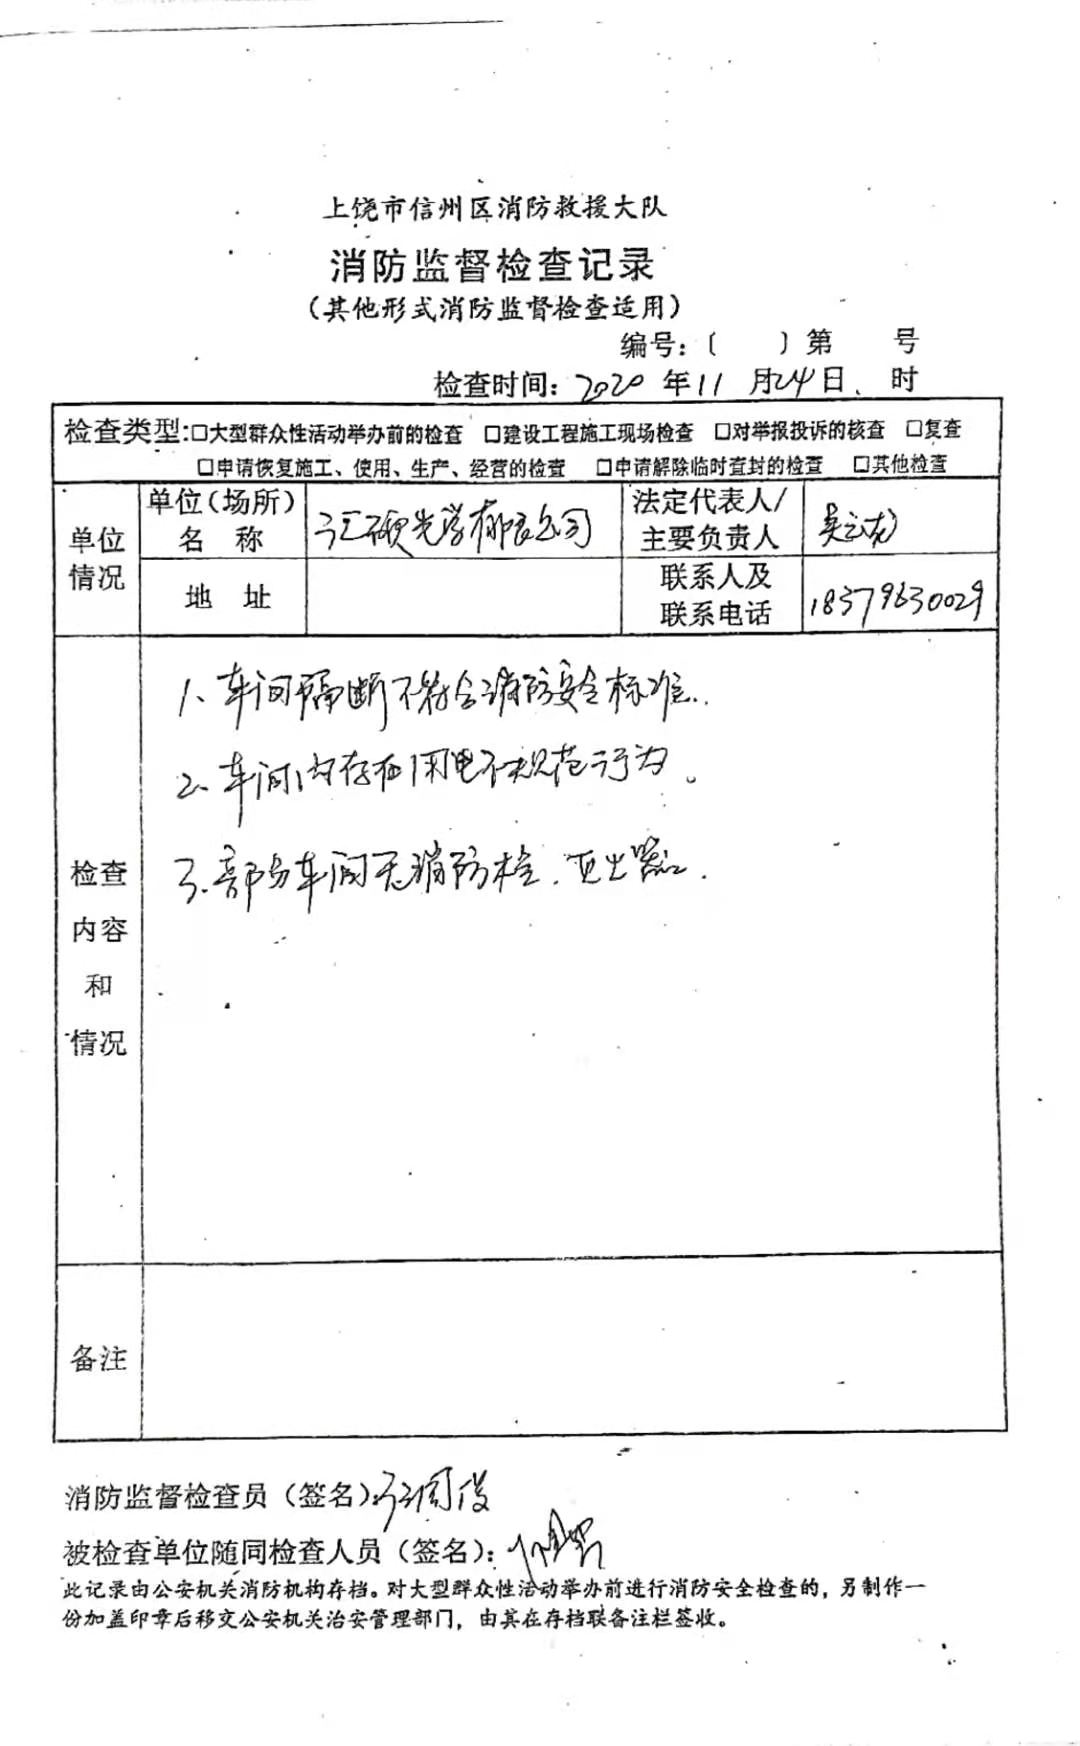 上饶市信州区消防救援大队
消防监督检查记录
(其他形式消防监督检查适用)
编号:〔 〕第 号
检查时间: 2020 年 11 月 24 日 时
检查类型:□大型群众性活动举办前的检查 □建设工程施工现场检查 □对举报投诉的核查 □复查
□申请恢复施工、使用、生产、经营的检查 □申请解除临时查封的检查 □其他检查
单位情况
单位(场所)名称 汇硕光学有限公司
法定代表人/主要负责人 吴云龙
地址
联系人及联系电话 18379630029
检查内容和情况
1、车间隔断不符合消防安全标准.
2、车间内存在用电不规范行为。
3.部分车间无消防栓.灭火器.
备注
消防监督检查员(签名):
被检查单位随同检查人员(签名):
此记录由公安机关消防机构存档。对大型群众性活动举办前进行消防安全检查的,另制作一
份加盖印章后移交公安机关治安管理部门,由其在存档联备注栏签收。